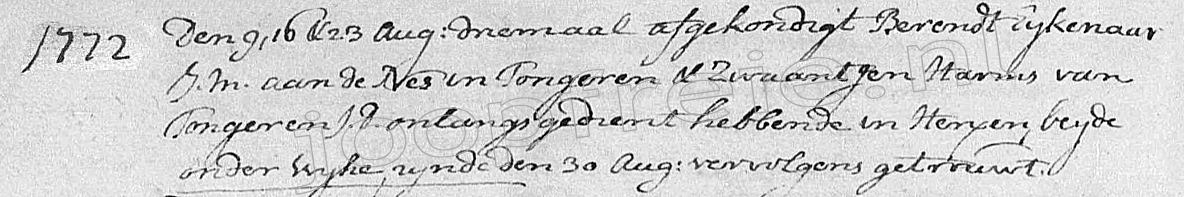 1772 Den 9, 16 & 23 Aug: driemaal afgekondigt Berendt Eijkenaar
J. M. aan de Nes in Tongeren & Zwaantjen Harms van
Tongeren J. D. onlangs gedient hebbende in Herxen, beyde
onder Wyhe, zynde den 30 Aug: vervolgens getrouwt.
joopreie.nl